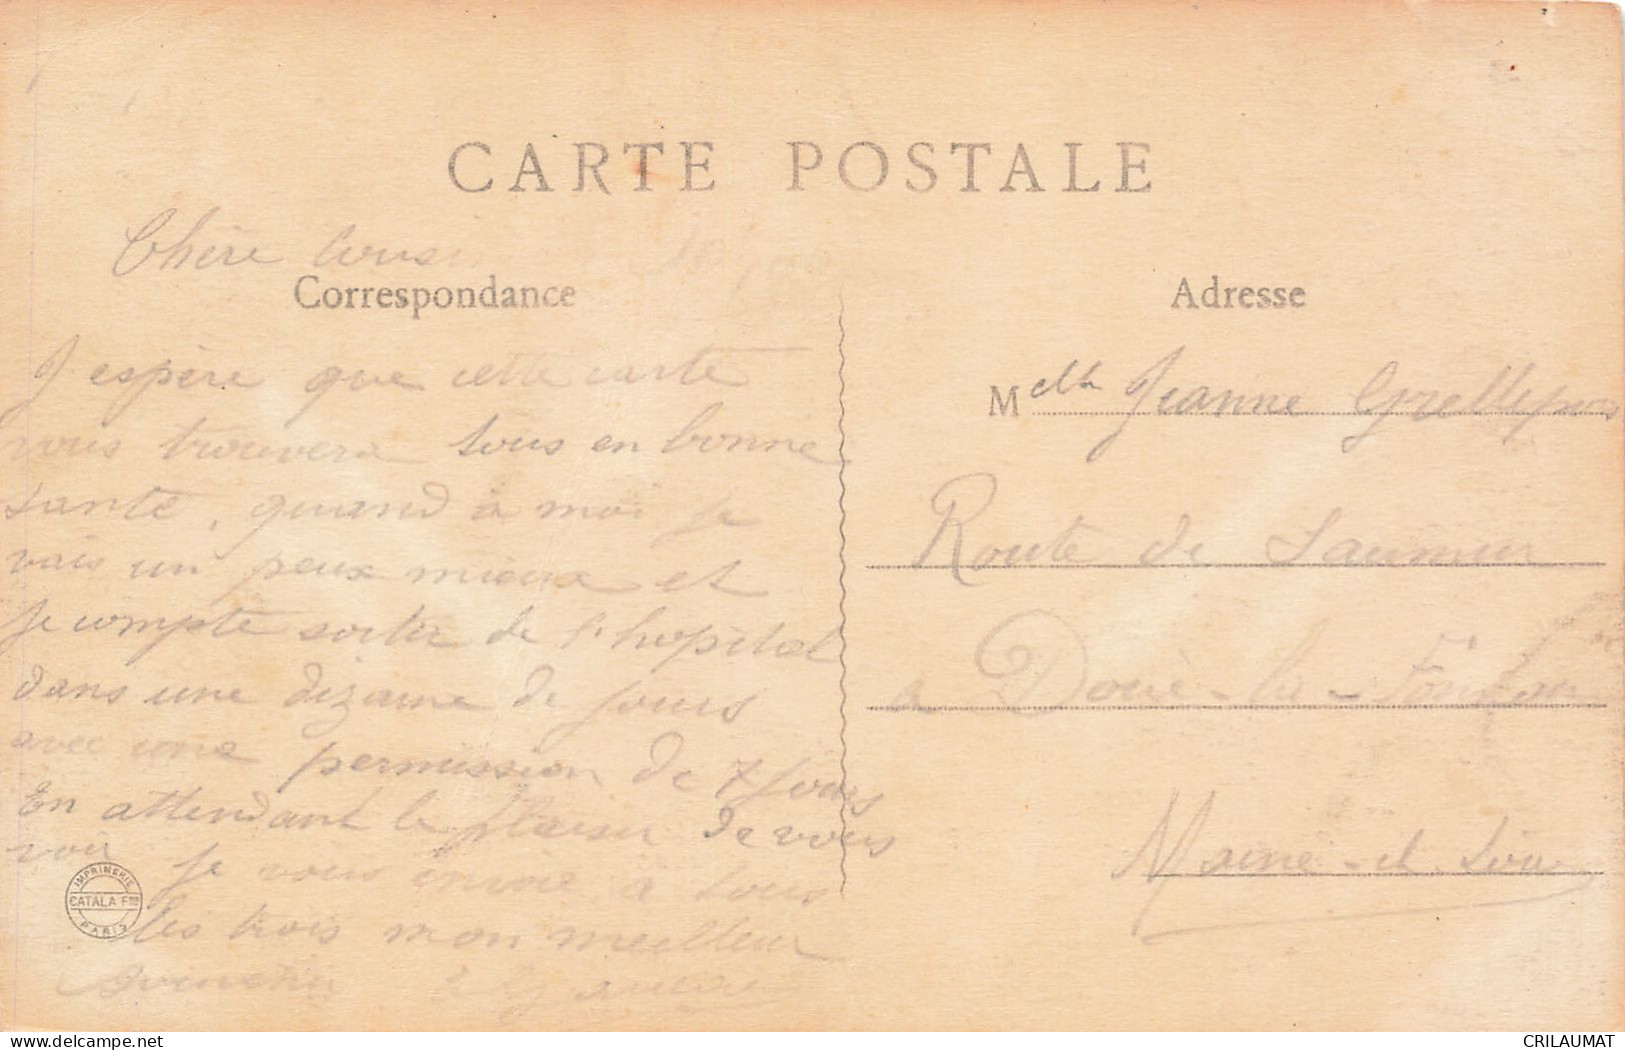 CARTE POSTALE
Chère Cousi
Correspondance
J espère que cette carte
vous trouvera tous en bonne
santé, quand à moi je
vais un peux mieux et
je compte sortir de l'hopital
dans une dizaine de jours
avec une permission de 7 jours
En attendant le plaisir de vous
voir je vous envoie à tous
les trois mon meilleur
souvenir
IMPRIMERIE
CATALA Fres
PARIS
Adresse
Melle Jeanne
Route de Saumur
a Doué-la-Fontaine
Maine-et-Loire
delcampe.net
CRILAUMAT